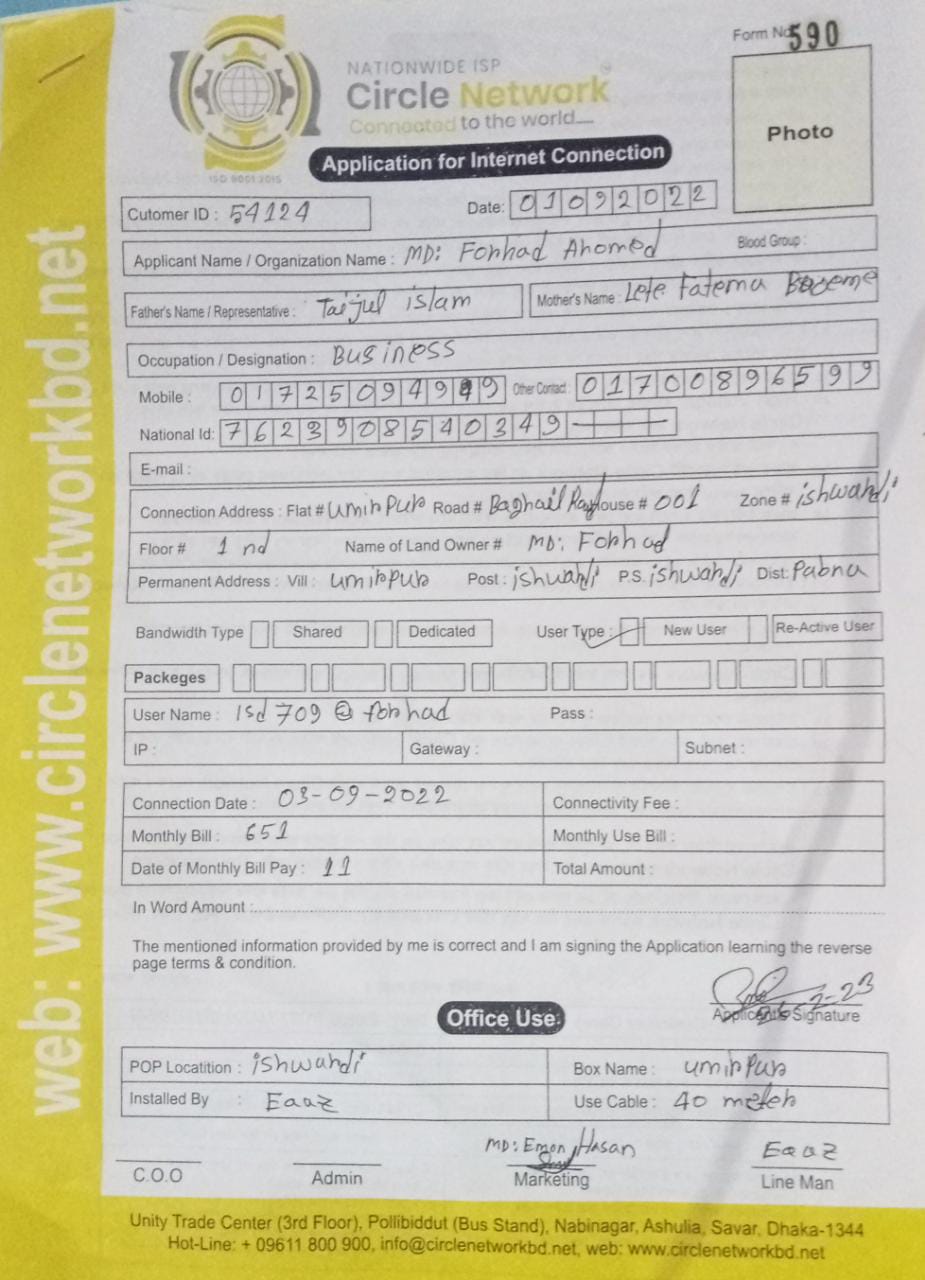 Form No 590
NATIONWIDE ISP
Circle Network
Connected to the world....
ISO 9001:2015
Photo
Application for Internet Connection
Cutomer ID : 54124 Date: 01092022
Applicant Name / Organization Name : MD: Forhad Ahomed Blood Group :
Father's Name / Representative : Taijul islam Mother's Name : Lete Fatema
Occupation / Designation : Business
Mobile : 01725094949 Other Contact : 01700896599
National Id: 7623908540349
E-mail :
Connection Address : Flat # umirpur Road # Baghail House # 001 Zone # ishwardi
Floor # 1 nd Name of Land Owner # MD: Forhad
Permanent Address : Vill : umirpur Post : ishwardi P.S. ishwardi Dist: Pabna
Bandwidth Type Shared Dedicated User Type : New User Re-Active User
Packeges
User Name : Isd 709 @ forhad Pass :
IP : Gateway : Subnet :
Connection Date : 03-09-2022 Connectivity Fee :
Monthly Bill : 651 Monthly Use Bill :
Date of Monthly Bill Pay : 11 Total Amount :
In Word Amount :
The mentioned information provided by me is correct and I am signing the Application learning the reverse
page terms & condition.
Applicent's Signature
Office Use:
POP Locatition : ishwardi Box Name : umirpur
Installed By : Eaaz Use Cable : 40 meter
MD: Emon Hasan Eaaz
C.O.O Admin Marketing Line Man
Unity Trade Center (3rd Floor), Pollibiddut (Bus Stand), Nabinagar, Ashulia, Savar, Dhaka-1344
Hot-Line: + 09611 800 900, info@circlenetworkbd.net, web: www.circlenetworkbd.net
web: www.circlenetworkbd.net